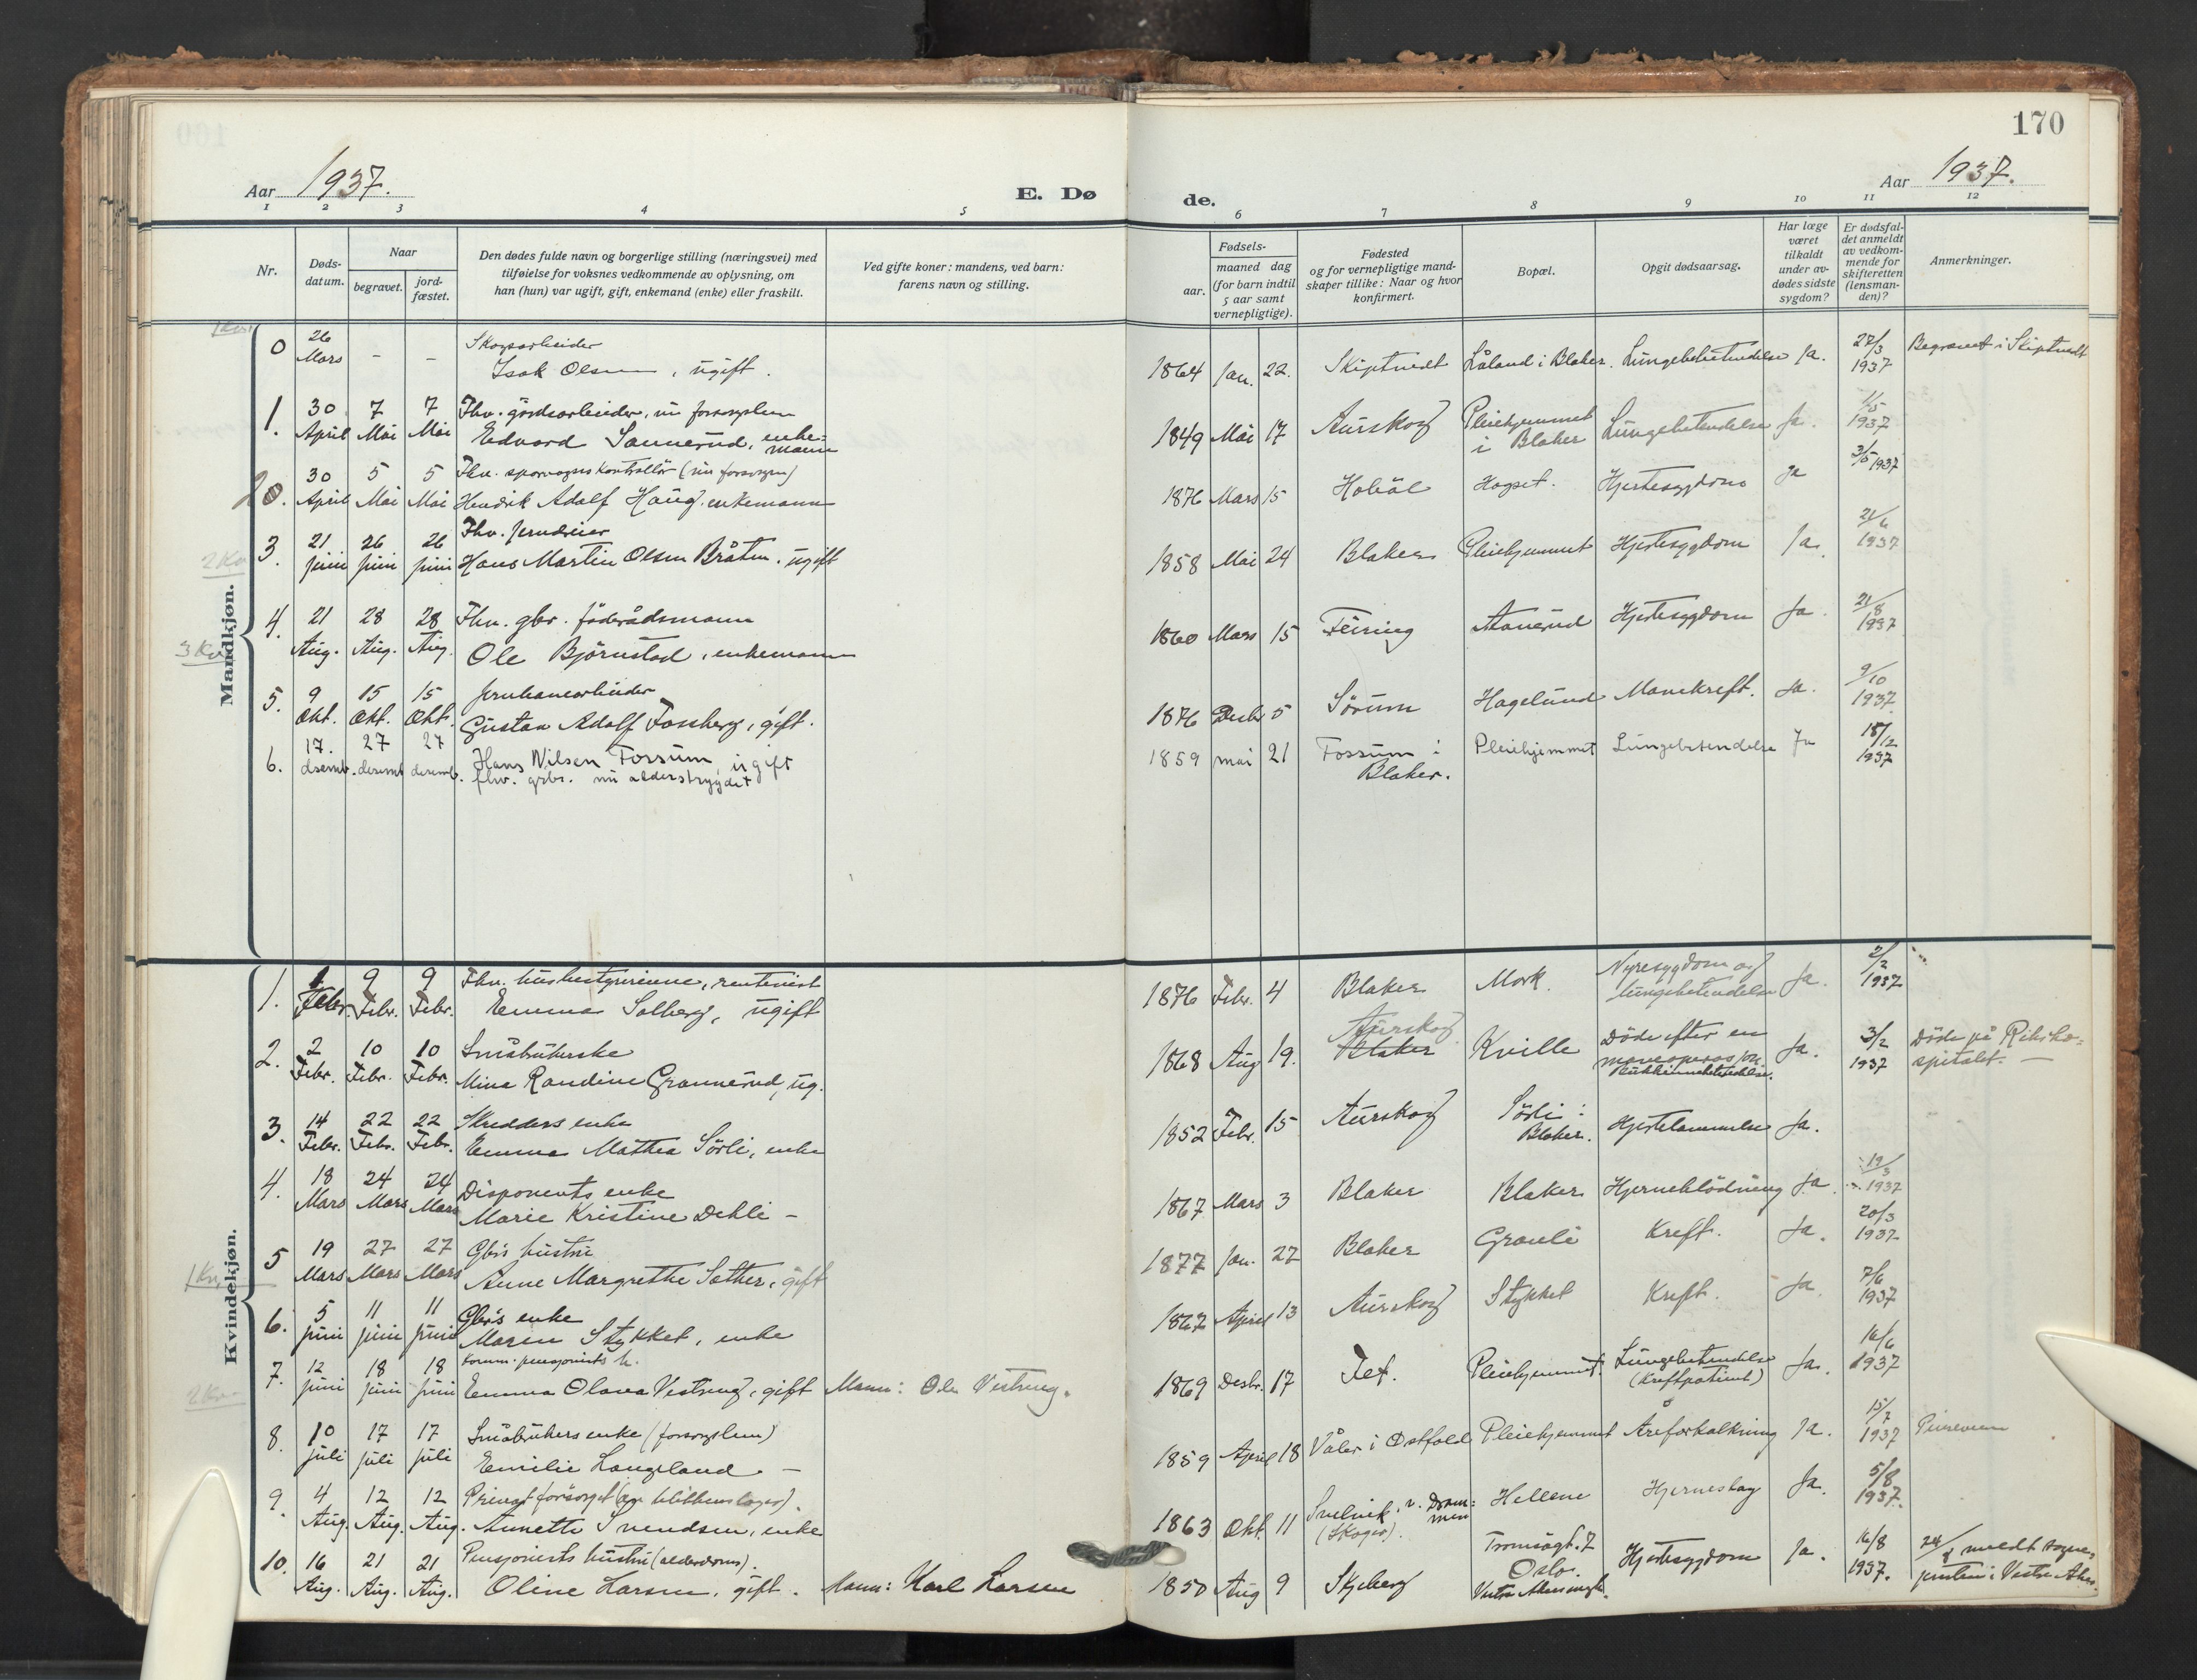 170
Aar 1937.
E. Dø
de.
Aar 1937.
1 2 3 4 5 6 7 8 9 10 11 12
Nr.
Døds-
datum.
Naar
begravet.
jord-
fæstet.
Den dødes fulde navn og borgerlige stilling (næringsvei) med
tilføielse for voksnes vedkommende av oplysning, om
han (hun) var ugift, gift, enkemand (enke) eller fraskilt.
Ved gifte koner: mandens, ved barn:
farens navn og stilling.
Fødsels-
aar.
maaned dag
(for barn indtil
5 aar samt
vernepligtige).
Fødested
og for vernepligtige mand-
skaper tillike: Naar og hvor
konfirmert.
Bopæl.
Opgit dødsaarsag.
Har læge
været
tilkaldt
under av-
dødes sidste
sygdom?
Er dødsfal-
det anmeldt
av vedkom-
mende for
skifteretten
(lensman-
den)?
Anmerkninger.
Mandkjøn.
0 26 Mars - - Skogsarbeider
Isak Olsen, ugift. 1864 Jan. 22. Skiptvedt Låland i Blaker. Lungebetendelse Ja. 27/3 1937 Begravet i Skiptvedt
1. 30 April 7 Mai 7 Mai Fhv. gårdsarbeider, nu forsorgslem
Edvard Sannerud, enke-
mann 1849 Mai 17 Aurskog Pleiehjemmet i Blaker Lungebetendelse Ja. 1/5 1937
20. 30 April 5 Mai 5 Mai Fhv. sporvognskontrollör (nu forsorgen)
Hendrik Adolf Haug, enkemann 1876 Mars 15 Hobøl Hogset. Hjertesygdom Ja 3/5 1937
3. 21 juni 26 juni 26 juni Fhv.
Hans Martin Olsen Bråten, ugift 1858 Mai 24 Blaker Pleiehjemmet Hjertesygdom Ja. 21/6 1937
4. 21 Aug. 28 Aug. 28 Aug. Fhv. gbr. föderådsmann
Ole Björnstad, enkemann 1860 Mars 15 Feiring Hjertesygdom Ja. 21/8 1937
5. 9 Okt. 15 Okt. 15 Okt. Jernbanearbeider
Gustav Adolf Fossberg, gift. 1876 Desbr 5 Sörum Hagelund Mavekreft. Ja. 9/10 1937.
6. 17. desemb. 27 desemb 27 desemb. Hans Nilsen Fossum, ugift
fhv. grbr. nu alderstrygdet 1859 mai 21 Fossum i Blaker. Pleiehjemmet Lungebetendelse Ja 18/12 1937
Kvindekjøn.
1. 1 Febr. 9 Febr. 9 Febr. Fhv. husbestyrerinne, rentenist
Emma Solberg, ugift 1876 Febr. 4 Blaker Mork. Nyresygdom og
lungebetendelse Ja. 2/2 1937
2. 2 Febr. 10 Febr. 10 Febr. Småbrukerske
Mina Randine Grannerud, ug. 1868 Aug 19. Aurskog Blaker Kville Döde efter en
maveoperasjon Ja. 3/2 1937 Döde på Riksho-
spitalet. —
3. 14 Febr. 22 Febr. 22 Febr. Skredders enke
Emma Mathea Sörli, enke 1852 Febr. 15 Aurskog Sörli i Blaker. Hjertelammelse Ja.
4. 18 Mars 24 Mars 24 Mars Disponents enke
Marie Kristine Dehli - 1867 Mars 3 Blaker Blaker Hjerneblödning Ja. 19/3 1937
5 19 Mars 27 Mars 27 Mars Gbrs hustru
Anne Margrethe Sæther, gift 1877 Jan. 22 Blaker Granli Kreft. Ja. 20/3 1937
6. 5 juni 11 juni 11 juni Gbrs enke
Maren Stykket, enke 1867 April 13 Aurskog Stykket Kreft. Ja. 7/6 1937
7. 12 juni 18 juni 18 juni Komm. pensjonists h.
Emma Olava Vestreng, gift Mann: Ole Vestreng. 1869 Desbr. 17 Fet. Pleiehjemmet. Lungebetendelse
(Kreftpatient) Ja. 16/6 1937
8. 10 juli 17 juli 17 juli Småbrukers enke (forsorgslem)
Emilie Langeland - 1859 April 18 Våler i Østfold Pleiehjemmet Åreforkalkning Ja. 15/7 1937
9. 4 Aug. 12 Aug. 12 Aug. Privat forsörget
Annette Svendsen, enke 1863 Okt. 11 Svelvik v. Dram-
men
(Skoger). Hellene Hjerneslag Ja. 5/8 1937.
10. 16 Aug. 21 Aug. 21 Aug. Pensjonists hustru (alderdoms).
Oline Larsen, gift. Mann: Karl Larsen 1850 Aug 9 Skjeberg Tromsögt. 7
Oslo. Hjertesygdom Ja. 16/8 1937. 24/8 meldt sogne-
presten i Vestre Aker.